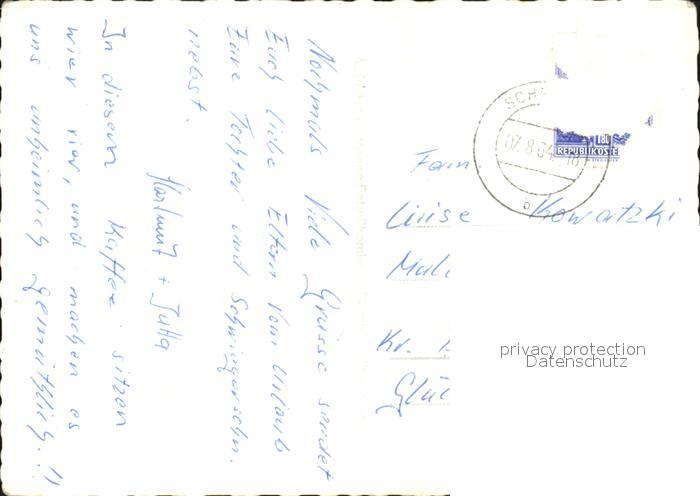 Nochmals Viele Grüsse sendet
Euch liebe Eltern vom Urlaub
Eure Tochter und Schwiegersohn.
nebst.
Hartmut + Jutta
In diesem Kaffee sitzen
wier vier, und machen es
uns unheimlich gemütlich.!!
SCH
07.8.64.-18
b
1.80 S
REPUBLIK ÖSTE
Fam
Luise Kowatzki
Kr.
privacy protection
Datenschutz